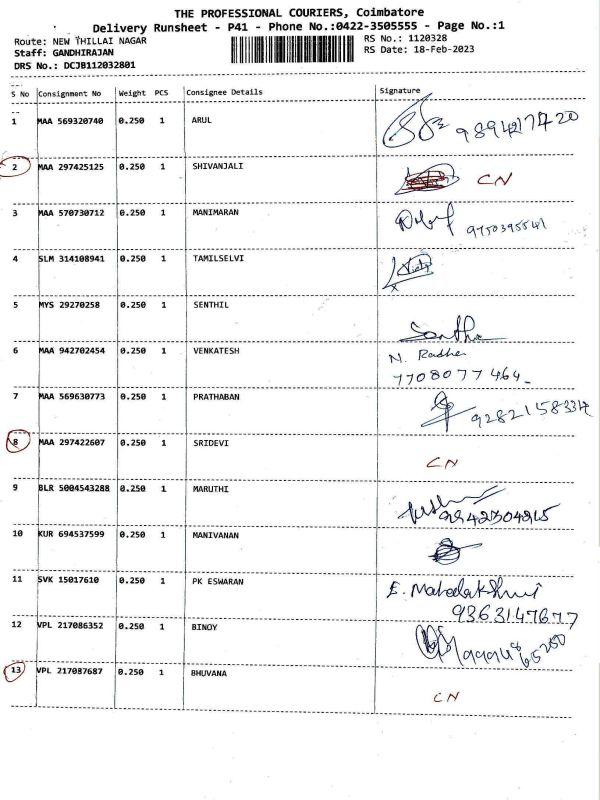 THE PROFESSIONAL COURIERS, Coimbatore
Delivery Runsheet - P41 - Phone No.:0422-3505555 - Page No.:1
Route: NEW THILLAI NAGAR
RS No.: 1120328
Staff: GANDHIRAJAN
RS Date: 18-Feb-2023
DRS No.: DCJB112032801
S No Consignment No Weight PCS Consignee Details Signature
1 MAA 569320740 0.250 1 ARUL
2 MAA 297425125 0.250 1 SHIVANJALI CN
3 MAA 570730712 0.250 1 MANIMARAN 9750395541
4 SLM 314108941 0.250 1 TAMILSELVI
5 MYS 29270258 0.250 1 SENTHIL
6 MAA 942702454 0.250 1 VENKATESH N. Radha
7708077464
7 MAA 569630773 0.250 1 PRATHABAN
8 MAA 297422607 0.250 1 SRIDEVI CN
9 BLR 5004543288 0.250 1 MARUTHI
10 KUR 694537599 0.250 1 MANIVANAN
11 SVK 15017610 0.250 1 PK ESWARAN E.
9363147677
12 VPL 217086352 0.250 1 BINOY
13 VPL 217087687 0.250 1 BHUVANA CN